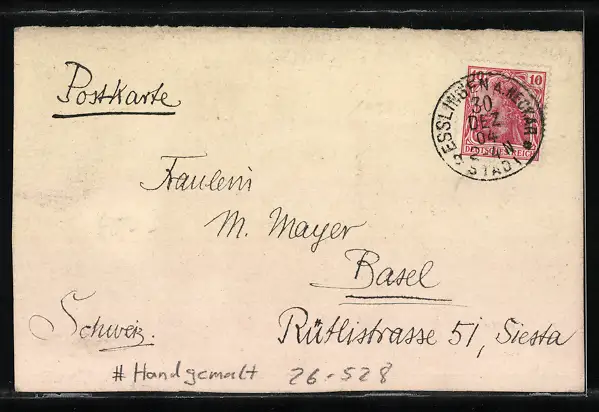 Postkarte
10
DEUTSCHES REICH
ESSLINGEN A. NECKAR
30
DEZ
04
STADT
Fraulein
M. Mayer
Basel
Schweiz.
Rütlistrasse 51, Siesta
# Handgemalt 26-528